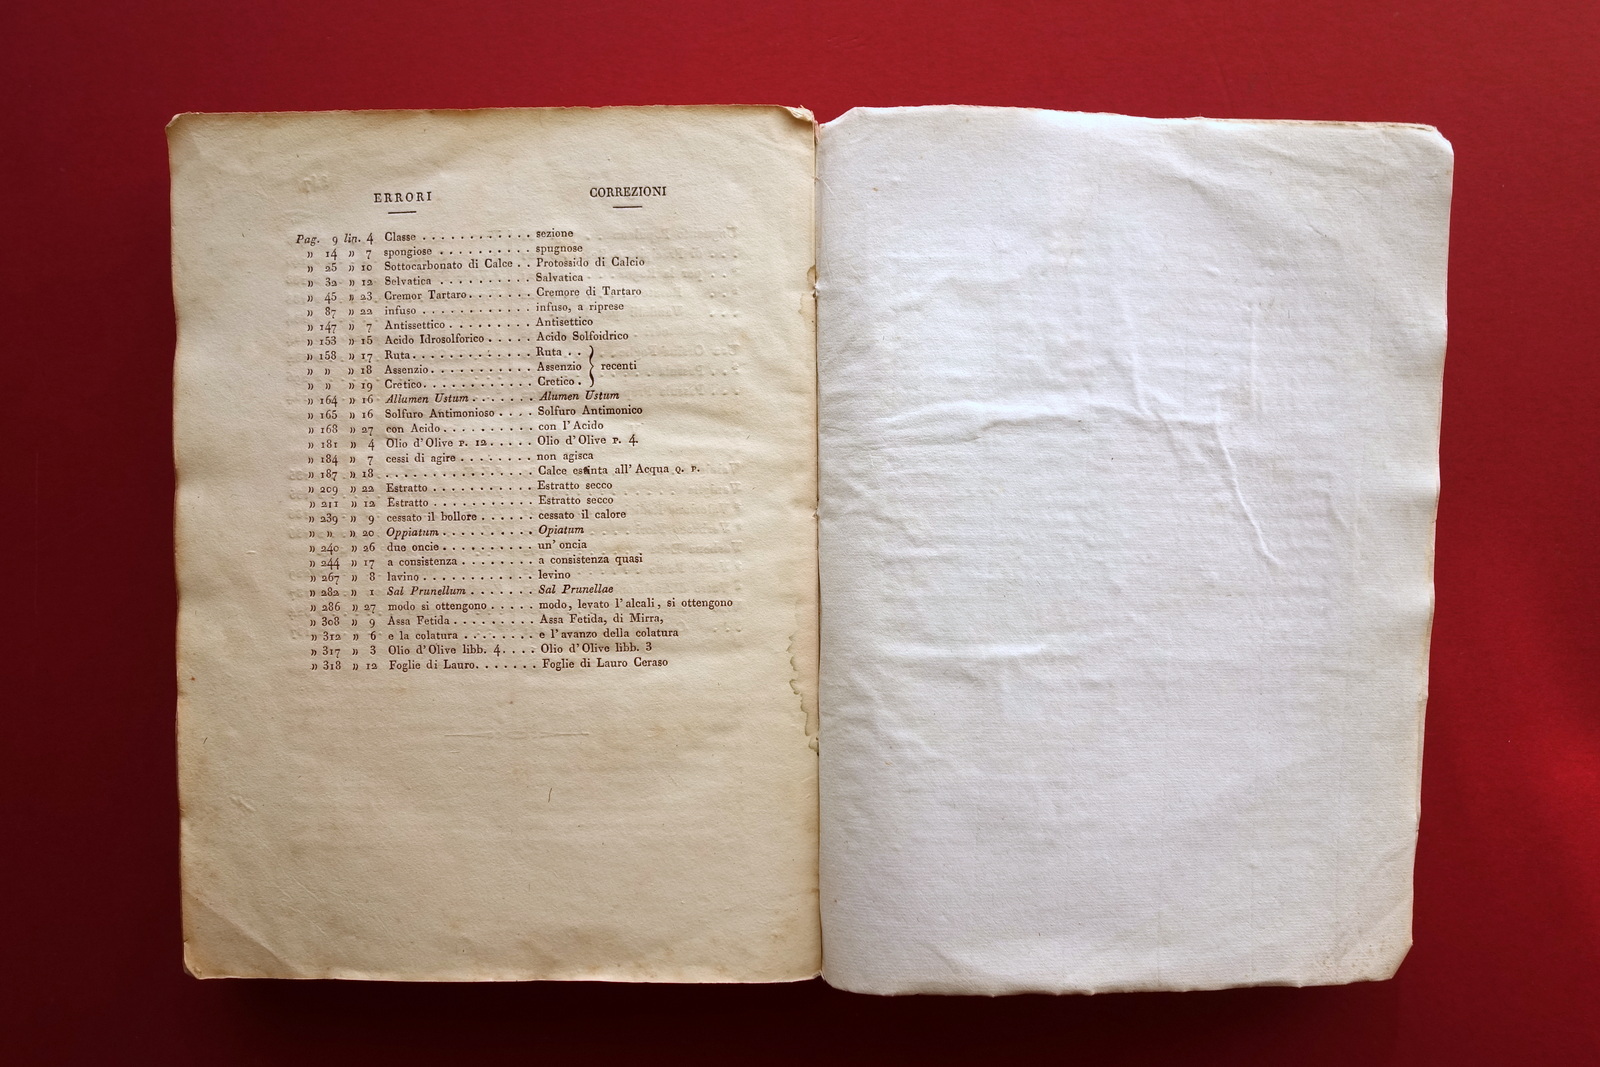 ERRORI CORREZIONI
Pag. 9 lin. 4 Classe . . . . . . . . . . . . sezione
» 14 » 7 spongiose . . . . . . . . . . spugnose
» 25 » 10 Sottocarbonato di Calce . . Protossido di Calcio
» 32 » 12 Selvatica . . . . . . . . . . Salvatica
» 45 » 23 Cremor Tartaro . . . . . . . Cremore di Tartaro
» 87 » 22 infuso . . . . . . . . . . . . infuso, a riprese
» 147 » 7 Antissettico . . . . . . . . . Antisettico
» 153 » 15 Acido Idrosolforico . . . . . Acido Solfoidrico
» 158 » 17 Ruta . . . . . . . . . . . . Ruta . .
» » » 18 Assenzio . . . . . . . . . . . Assenzio } recenti
» » » 19 Cretico . . . . . . . . . . . . Cretico .
» 164 » 16 Allumen Ustum . . . . . . . Alumen Ustum
» 165 » 16 Solfuro Antimonioso . . . . Solfuro Antimonico
» 168 » 27 con Acido . . . . . . . . . . con l'Acido
» 181 » 4 Olio d'Olive P. 12 . . . . . Olio d'Olive P. 4
» 184 » 7 cessi di agire . . . . . . . . non agisca
» 187 » 18 . . . . . . . . . . . . . . . Calce estinta all'Acqua Q. P.
» 209 » 22 Estratto . . . . . . . . . . . Estratto secco
» 211 » 12 Estratto . . . . . . . . . . . Estratto secco
» 239 » 9 cessato il bollore . . . . . . cessato il calore
» » » 20 Oppiatum . . . . . . . . . . Opiatum
» 240 » 26 due oncie . . . . . . . . . . un'oncia
» 244 » 17 a consistenza . . . . . . . . a consistenza quasi
» 267 » 8 lavino . . . . . . . . . . . . levino
» 282 » 1 Sal Prunellum . . . . . . . Sal Prunellae
» 286 » 27 modo si ottengono . . . . . modo, levato l'alcali, si ottengono
» 308 » 9 Assa Fetida . . . . . . . . . Assa Fetida, di Mirra,
» 312 » 6 e la colatura . . . . . . . . e l'avanzo della colatura
» 317 » 3 Olio d'Olive libb. 4 . . . . Olio d'Olive libb. 3
» 318 » 12 Foglie di Lauro . . . . . . . Foglie di Lauro Ceraso